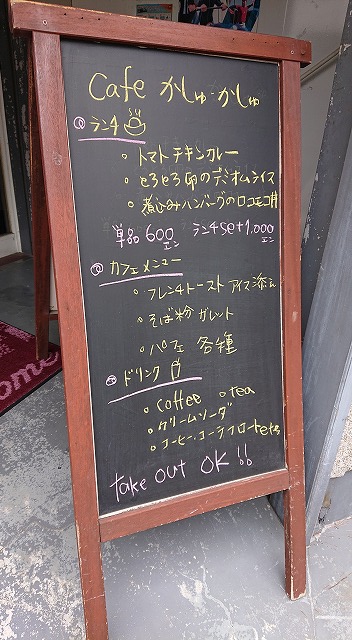 Cafe かしゅ・かしゅ
ランチ
○ トマトチキンカレー
○ とろとろ卵のデミオムライス
○ 煮込みハンバーグのロコモコ丼
単品 600エン ランチset 1,000エン
カフェメニュー
○ フレンチトースト アイス添え
○ そば粉ガレット
○ パフェ 各種
ドリンク
○ coffee ○ tea
○ クリームソーダ
○ コーヒー.コーラフロートetc
take out OK !!
ome